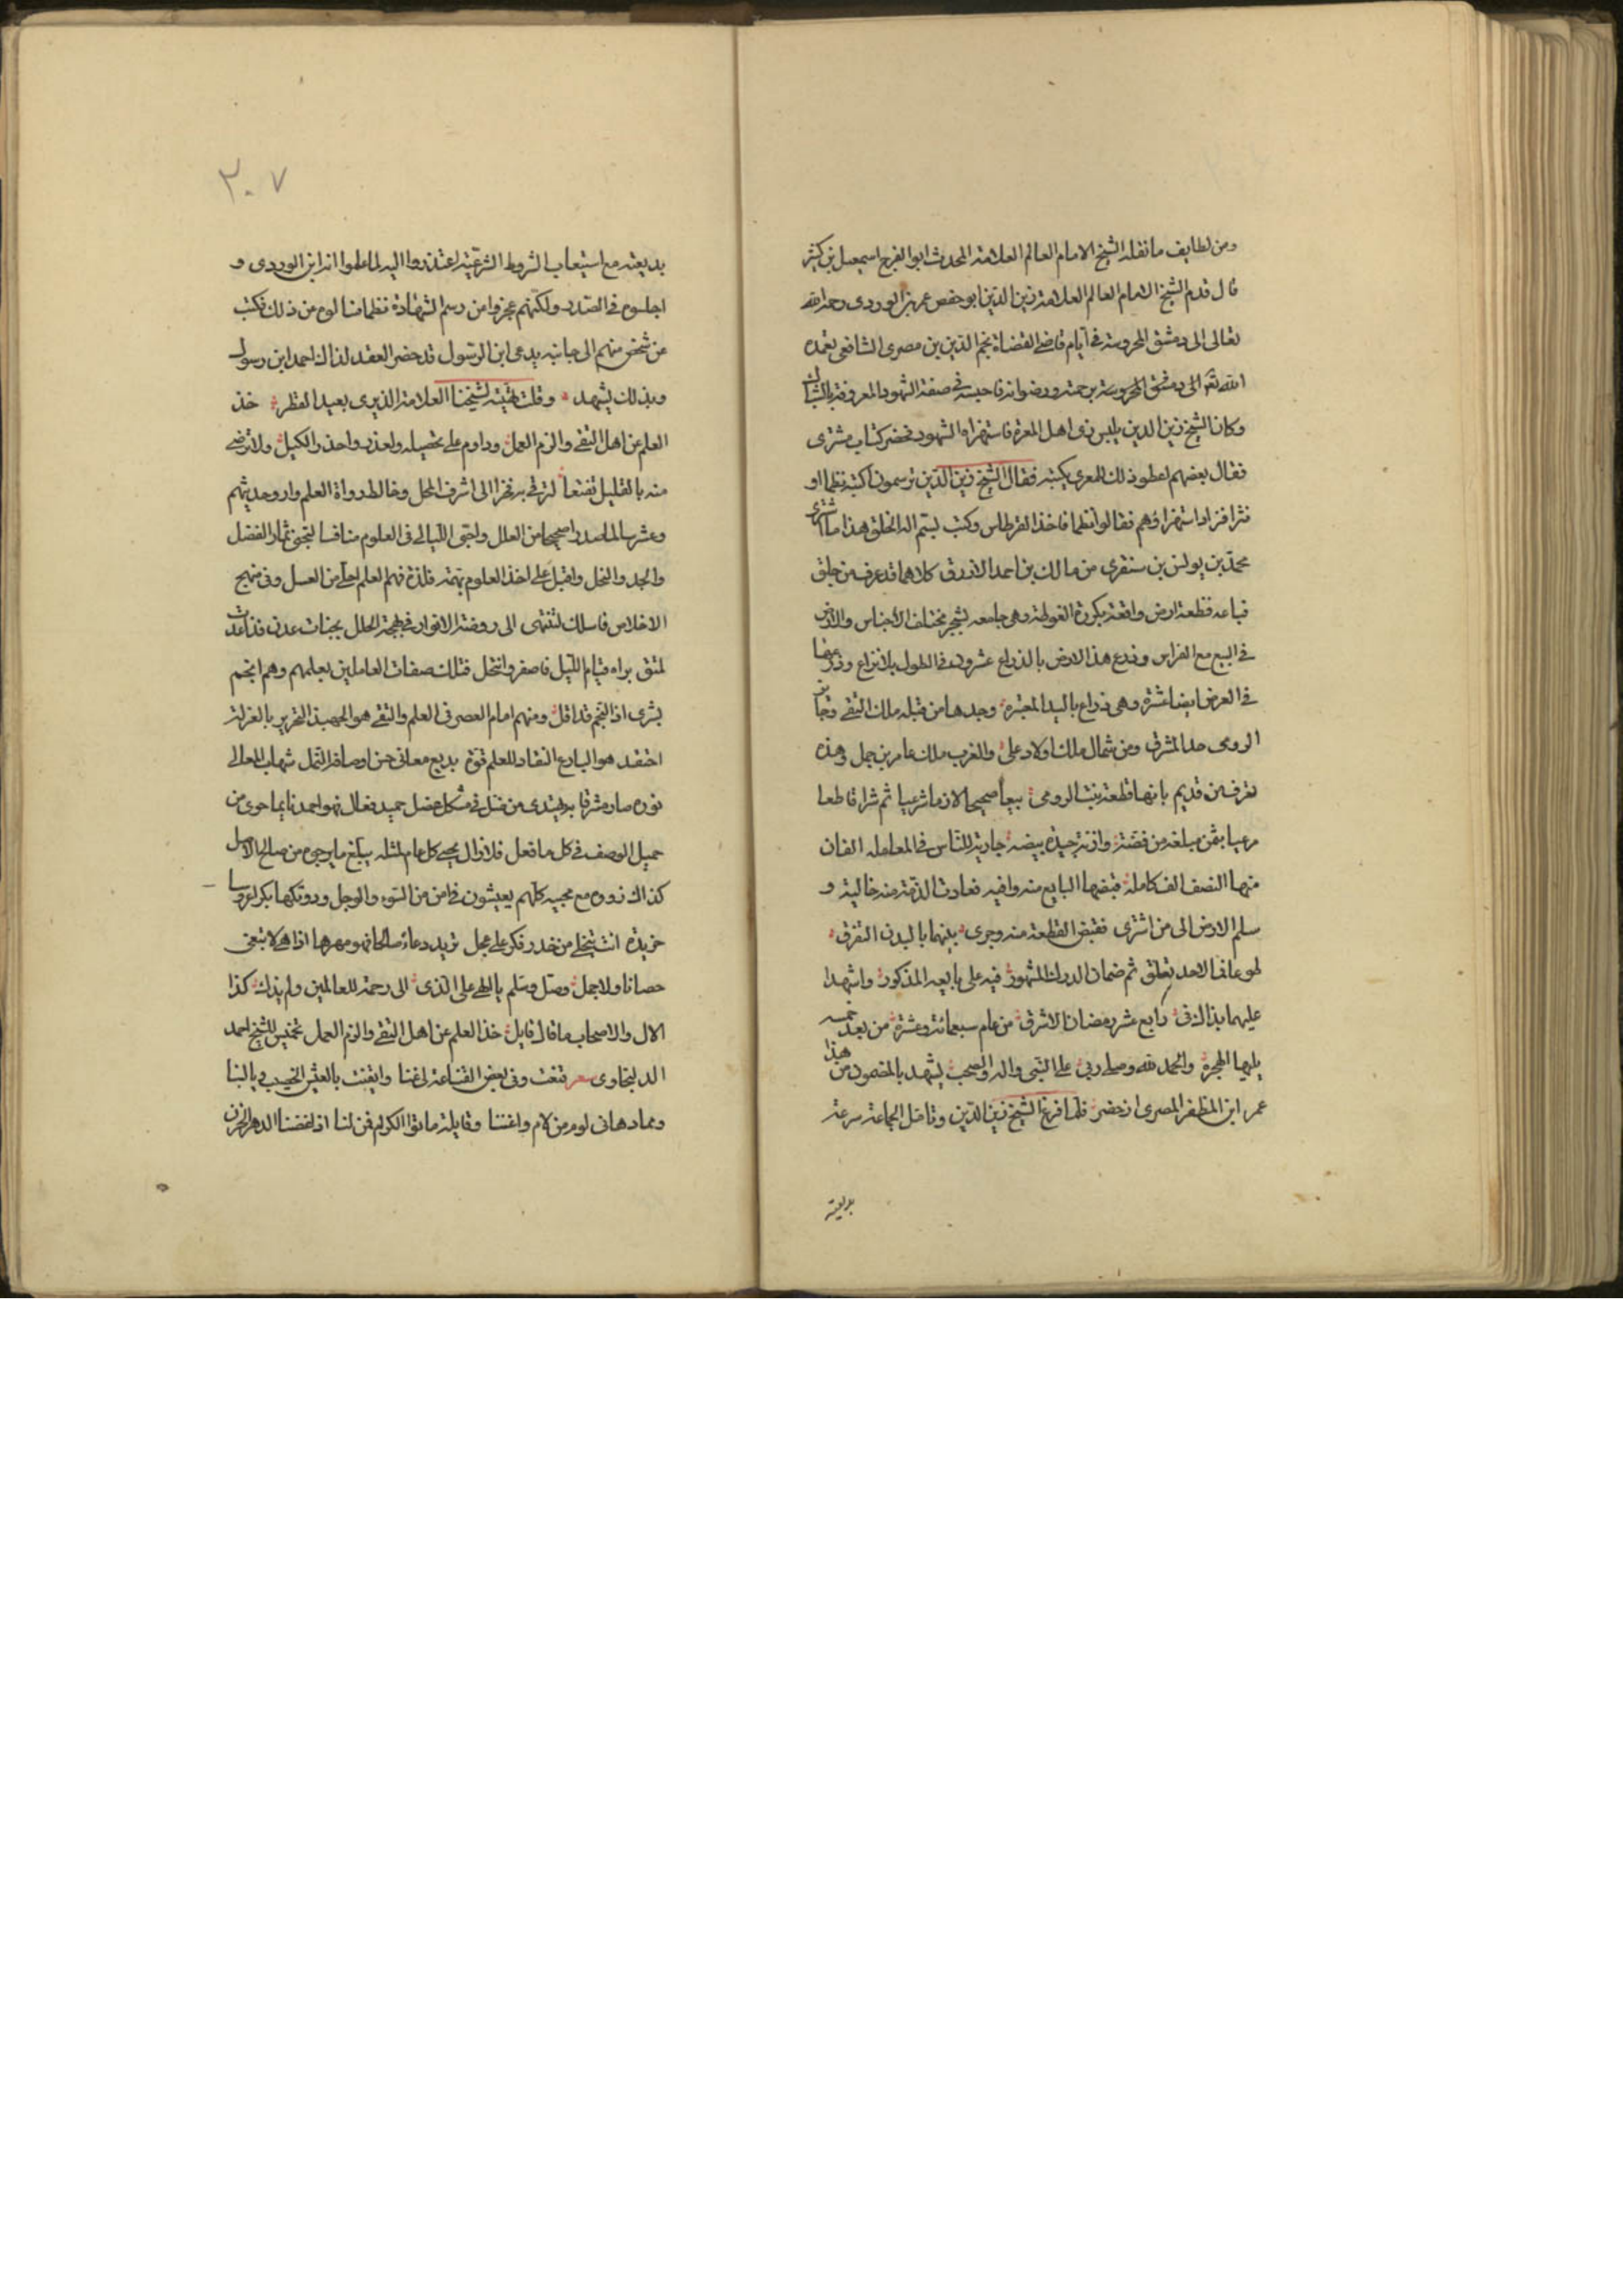 ومن لطايف ما نقله الشيخ الامام العالم العلامة المحدث ابو الفرج اسمعيل بن كثير
قال قدم الشيخ الامام العالم العلامة زين الدين ابو حفص عمر بن الوردى رحمه الله
تعالى الى دمشق المحروسة فى ايام قاضى القضاة نجم الدين بن مصرى الشافعى تغمده
الله تعالى دمشق المحروسة برحمته ورضوانه فاجلسه فى صفة الشهود المعروفة بالشباك
وكان الشيخ زين الدين يلبس زى اهل المعرة فاستهزا الشهود فحضر كتاب مشترى
فقال بعضهم اعطوا ذلك للمعرى يكتبه فقال الشيخ زين الدين ترسمون اكتبه نظما او
نثرا فزاد استهزاؤهم فقالوا نظما فاخذ القرطاس وكتب بسم اله الخلق هذا ما اشترى
محمد بن يونس بن سنقرى من مالك بن احمد الازرق كلاهما قد عرف من جلق
فباعه قطعة ارض واقعة بكورة الغوطة وهى جامعه لشجر مختلف الاجناس والارض
فى البيع مع الغراس وذرع هذا الارض بالذراع عشرون فى الطول بلا نزاع وذرعها
فى العرض ايضا عشرة وهى ذراع باليد المعتبرة وحدها من قبله ملك التقى وحائز
الرومى حد المشرق ومن شمال ملك اولاد على والغرب ملك عامر بن جمل وهذه
تعرف من قديم بانها قطعة بنت الرومى بيعا صحيحا لازما شرعيا ثم شرا قاطعا
مرعيا بثمن مبلغه من فضة وازنة جيدة بيضه جارية للناس فى المعامله الفان
منها النصف الف كاملة قبضها البايع منه وافيه فعادت الذمة منه خالية و
سلم الارض الى من اشترى فقبض القطعة منه وجرى بينهما بالبدن التفرق
طوعا فما لاحد تعلق ثم ضمان الدرك المشهور فيه على بايعه المذكور واشهدا
عليهما بذاك فى رابع عشر رمضان الاشرف من عام سبعمائة وعشرة من بعد خمسه
يليها الهجرة والحمد لله وصلى ربى على النبى واله والصحب يشهد بالمضمون من هذا
عمر ابن المظفر المصرى اذ حضر فلما فرغ الشيخ زين الدين وتامل الجماعة سرعة
بديعته
٣٠٧
بديعته مع استيعاب الشروط الشرعية اعتذروا اليه لما علموا انه ابن الوردى و
اجلسوه فى الصدر ولكنهم عجزوا من رسم الشهادة نظما فسالوه من ذلك فكتب
عن شخص منهم الى جانبه يدعى ابن الرسول قد حضر العقد لذاك احمد ابن رسول
وبذلك يشهد وقلت تهنئة لشيخنا العلامة الديرى بعيد الفطر خذ
العلم عن اهل التقى والزم العمل وداوم على تحصيله واحذر الكسل ولا ترضى
منه بالقليل تقنعا لترقى به فخرا الى اشرف المحل وخالط رواة العلم وارو حديثهم
صحيحا من العلل واحيى الليالى فى العلوم منافسا لتجنى ثمار الفضل
والجد والنحل واقبل على اخذ العلوم بهمة فلذة فهم العلم احلى من العسل وفى منهج
الاخلاص فاسلك لتنتهى الى روضة الانوار فى بهجة الحلل بجنات عدن قد اعدت
لمتق براه قيام الليل فاصفر وانتحل فتلك صفات العاملين بعلمهم وهم انجم
بشرى اذا النجم قد افل ومنهم امام العصر فى العلم والتقى هو الجهبذ النحرير بالعز لن
هو البارع النقاد للعلم قوة بديع معانى حسن اوصافه اكتمل شهاب المعالى
نوره صار مشرقا به يهتدى من ضل فى مشكل معضل حميد فعال فهو احمدنا بما حوى من
جميل الوصف فى كل ما فعل فلا زال يحيى كل عام لمثله يبلغ ما يرجوه من صالح الامل
كذاك ذووه مع محبيه كلهم يعيشون فى امن من السوء والوجل ودونكها بكرا عروسا
خريدة اتت تنجلى من خدر فكر على عجل تريد دعاء صالحا فهو مهرها اذا هى لا تبغى
حصانا ولا جمل وصل وسلم يا الهى على الذى الى رحمة للعالمين ولم يزل كذا
الال والاصحاب ما قال قايل خذ العلم عن اهل التقى والزم العمل تخميس للشيخ احمد
الدلنجاوى شعر قنعت وفى بعض القناعة لى غنا وايقنت بالعيش الخصيب وبالهنا
ومما دهانى لوم من لام واعتنا وقايلة ماتوا الكرام فمن لنا اذا عضنا الدهر